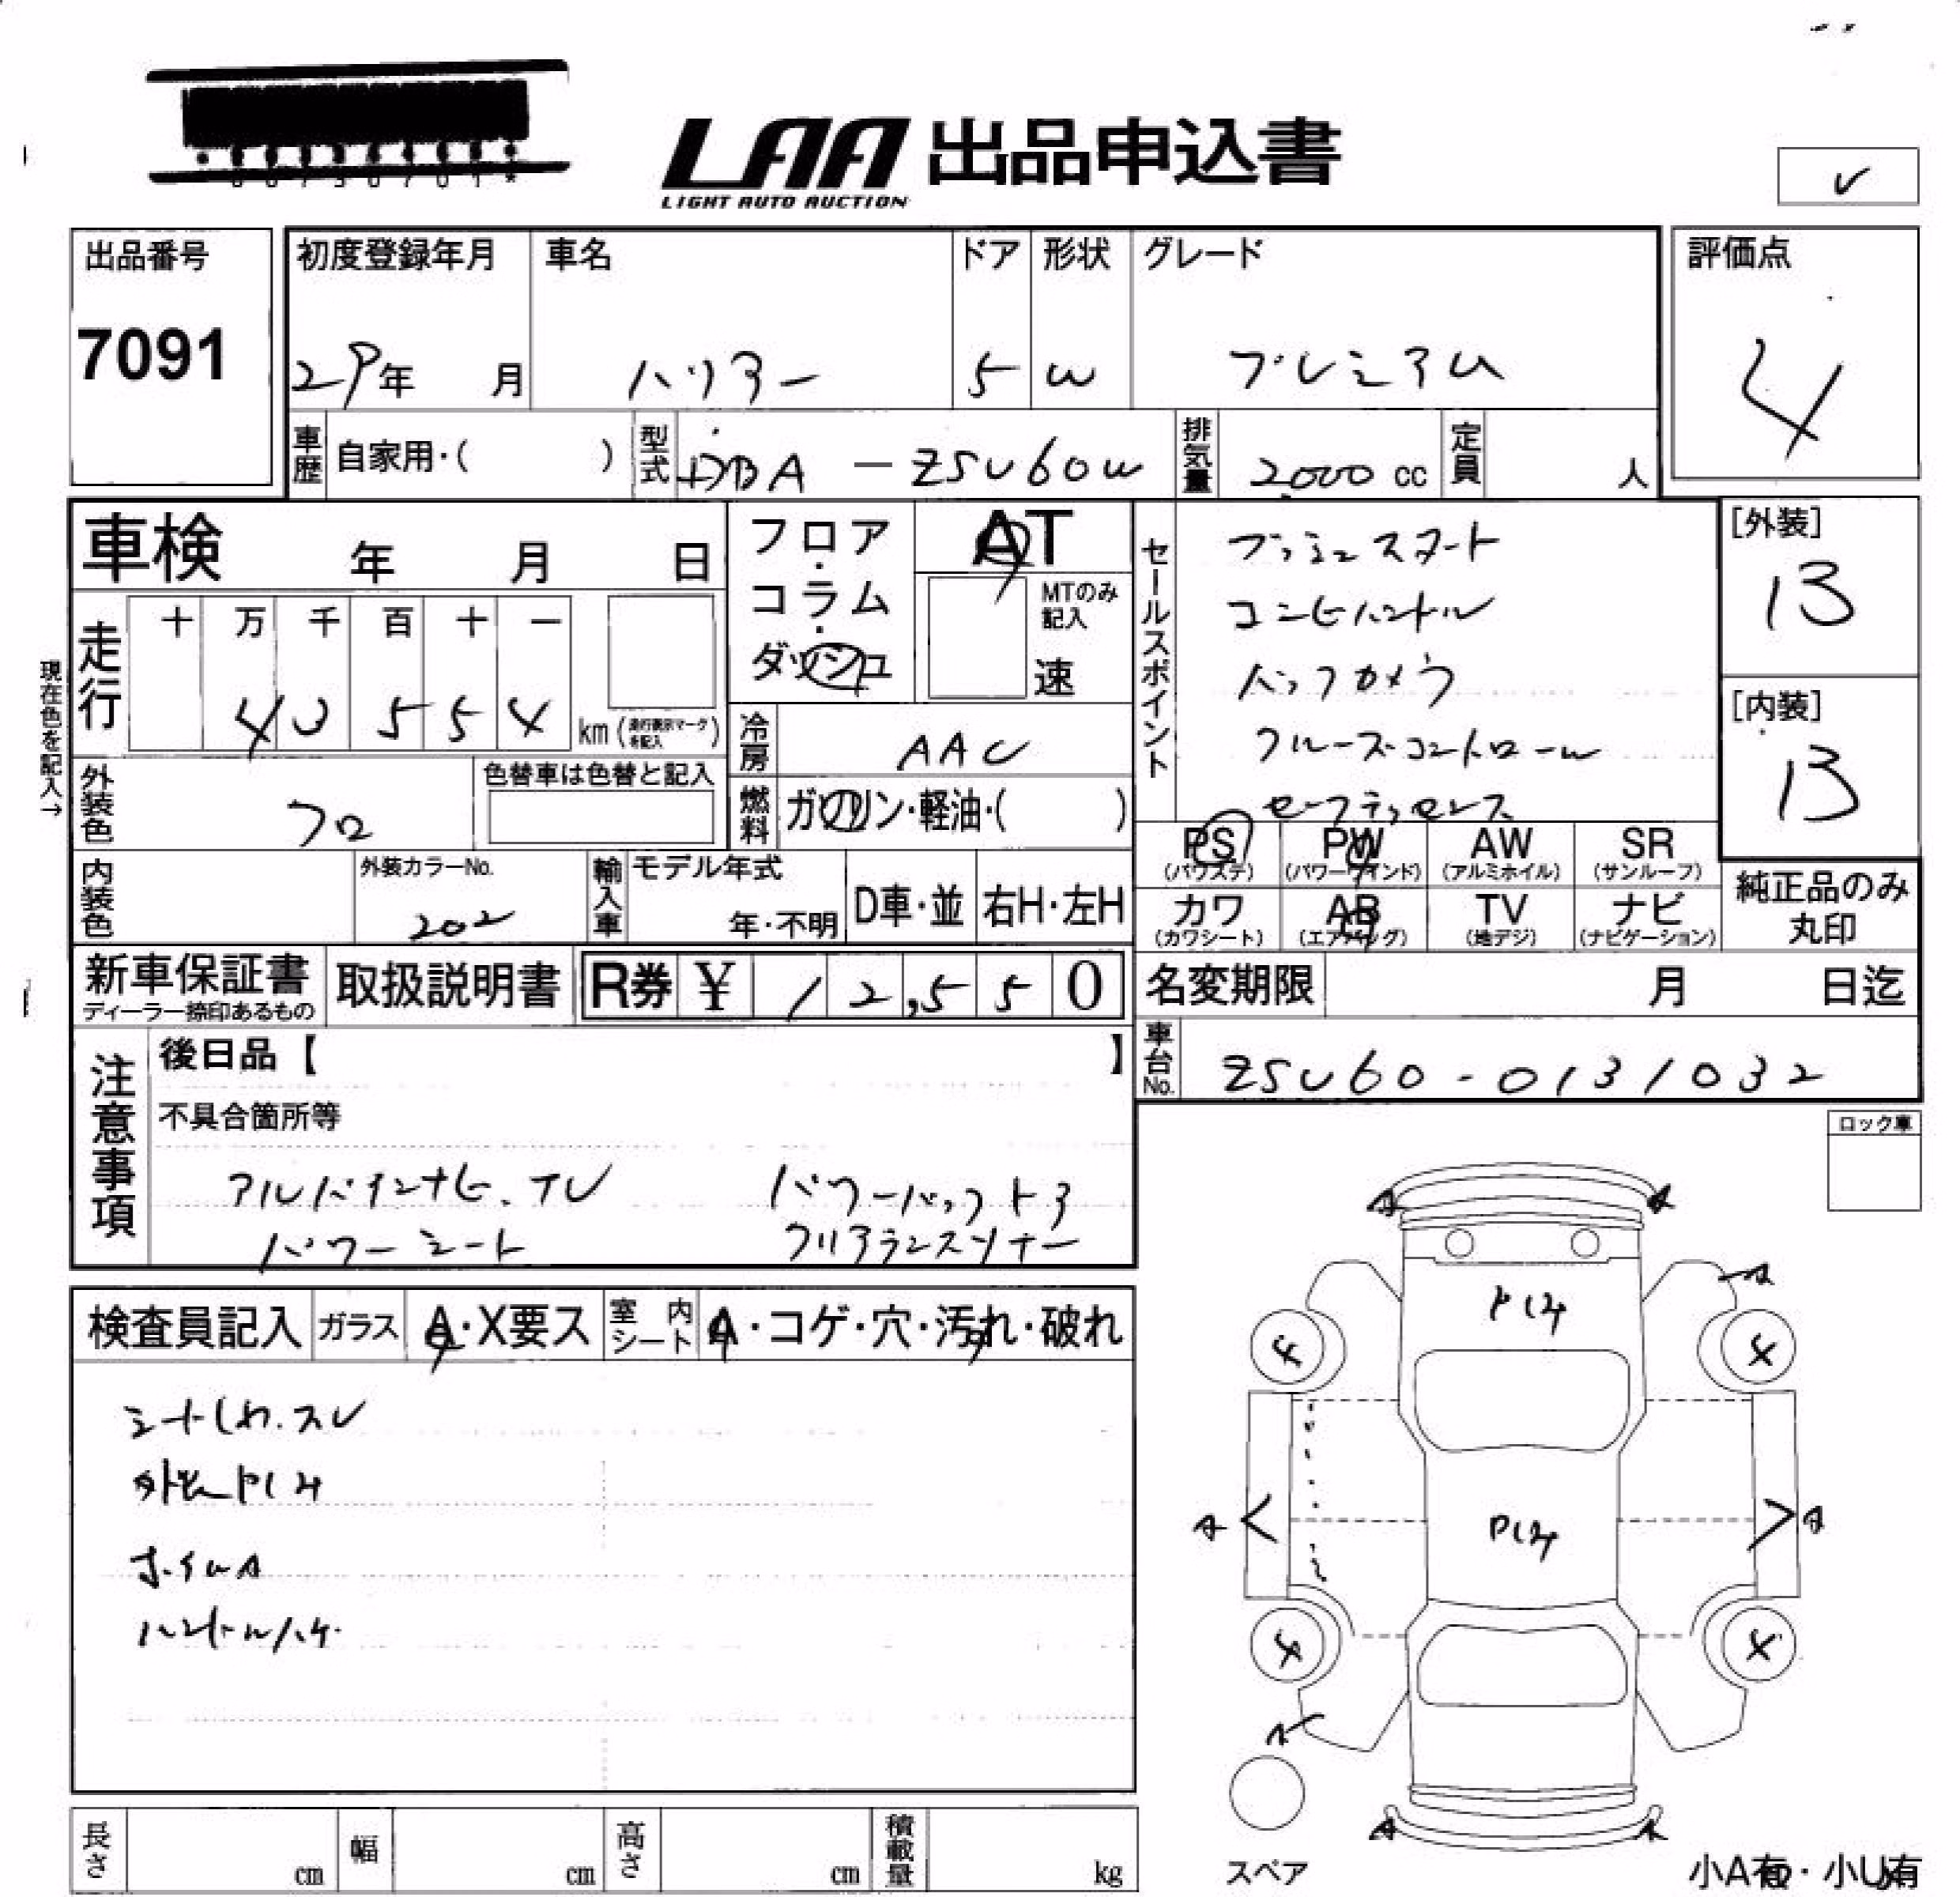 LAA 出品申込書
LIGHT AUTO AUCTION
レ
出品番号
7091
初度登録年月
29年 月
車名
ハリアー
ドア
5
形状
W
グレード
プレミアム
評価点
4
車歴 自家用・( )
型式 DBA - ZSU60W
排気量 2,000 cc
定員 人
車検 年 月 日
フロア・コラム・ダッシュ
AT
MTのみ記入
速
走行 十 万 千 百 十 一
4 0 5 5 4 km (走行表示マークを記入)
現在色を記入→
外装色 クロ
色替車は色替と記入
冷房 AAC
燃料 ガソリン・軽油・( )
内装色
外装カラーNo.
202
輸入車 モデル年式
年・不明
D車・並
右H・左H
セールスポイント
プッシュスタート
コンビハンドル
バックカメラ
クルーズコントロール
セーフティセンス
[外装]
13
[内装]
13
PS (パワステ) PW (パワーウインド) AW (アルミホイル) SR (サンルーフ)
カワ (カワシート) AB (エアバッグ) TV (地デジ) ナビ (ナビゲーション)
純正品のみ丸印
新車保証書
ディーラー捺印あるもの
取扱説明書
R券 ¥ 1 2,5 5 0
名変期限 月 日迄
車台No. ZSU60-0131032
注意事項
後日品【 】
不具合箇所等
アルパインナビ、TV パワーバックドア
パワーシート クリアランスソナー
ロック車
検査員記入 ガラス A・X要ス 室内シート A・コゲ・穴・汚れ・破れ
シートしわ.スレ
外装トビ
ホイルA
ハンドルハゲ
A A
A
A A
A
A A
スペア
小A有・小U有
長さ cm 幅 cm 高さ cm 積載量 kg